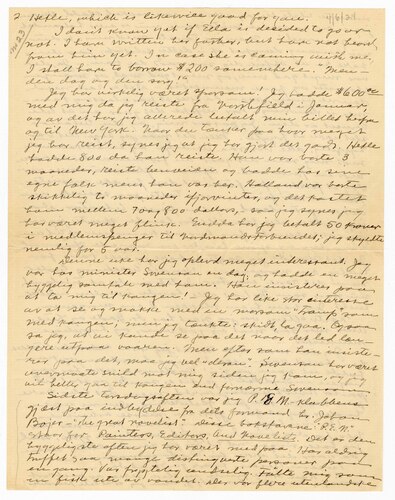 2. Helle, which is likewise good for you.
I don't know yet if Ella is decided to go or
not. I have written her father, but have not heard
from him yet. In case she is coming with me,
I shall have to borrow $200 somewhere. "Men –
den dag og den sorg."
Jeg har virkelig været sparsom! Jeg hadde $600.00
med mig da jeg reiste fra Northfield i January
og av det har jeg allerede betalt min billet herfra
og til New York. Naar du tænker paa hvor meget
jeg har reist, synes jeg at jeg har gjort det godt. Helle
hadde 800 da han reiste. Han var borte 3
maaneder, reiste
egne folk mens han var her. Halland var borte
maaneder ifjorvinter, og det kostet
ham mellem 700 og 800 dollars, – saa jeg synes jeg
har været meget flink. Endda har jeg betalt 50 kroner
i til Nordmandsforbundet; jeg skyldte
nemlig for 5 aar.
Denne uke har jeg oplevd meget interessant. Jeg
var hos minister Swenson en dag, og hadde en meget
hyggelig samtale med ham. Han insisterer paa
at ta mig til kongen! – Jeg har ikke stor interesse
av at se og snakke med en
med kongen, men jeg tænkte: skidt, la gaa. Ogsaa
sa jeg, at vi kunde se paa det naar det led læn-
gere utpaa vaaren. Men efter som han insiste-
rer paa det, maa jeg vel "dera". Swenson har været
mot mig siden jeg kom, og jeg
vil heller gaa til kongen end fornærme Swenson.
Sidste torsdagaften var jeg P.E.N. klubbens
gjest paa indbydelse fra dets formand hr. Johan
Bojer – "the great novelist". Disse bokstavene "P.E.N."
staar for Painters, Editors, and Novelists. Det er den
hyggeligste aften jeg har været med paa. Har aldrig
truffet saa mange distingverte personer paa
en gang. Var frygtelig Følte mig som
en fisk ute av vandet. Der var flere utenlandske